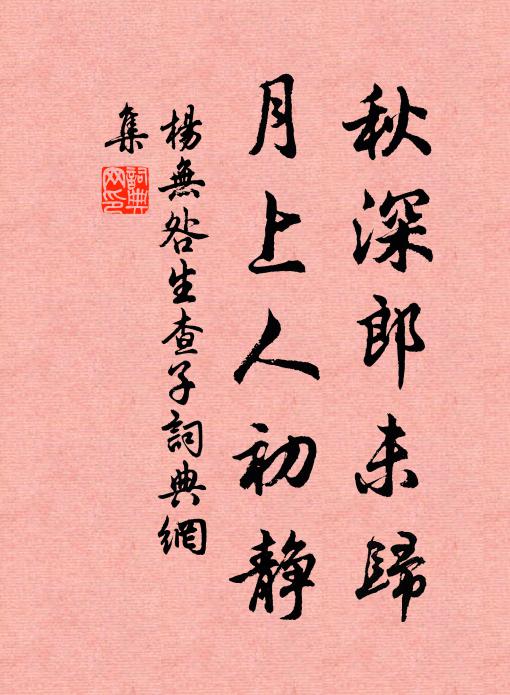 秋深郎未歸
月上人初靜
楊無咎生查子詞典網
集
詞典
网印